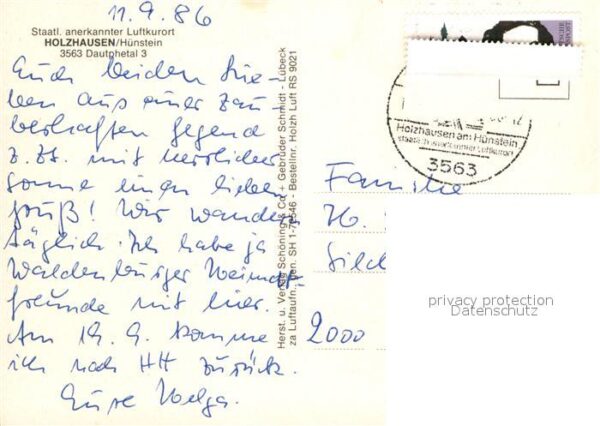 11.9.86
Staatl. anerkannter Luftkurort
HOLZHAUSEN/Hünstein
3563 Dautphetal 3
Euch beiden Lie-
ben aus einer zau-
berhaften Gegend
z.Zt. mit herrlicher
Sonne einen lieben
Gruß! Wir wandern
täglich. Ich habe ja
Waldenburger Heimat-
freunde mit hier.
Am 19.9. komme
ich nach HH zurück.
Eure Helga.
Herst. u. Verlag Schöning & Co + Gebrüder Schmidt - Lübeck
za Luftaufn. Gen. SH 1-78546 Bestellnr. Holzh Luft RS 9021
Holzhausen am Hünstein
staatlich anerkannter Luftkurort
3563
Familie
H.
2000
privacy protection
Datenschutz